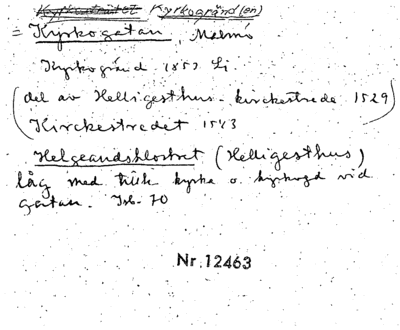 Kyrkosträdet Kyrkogränd(en)
= Kyrkogatan, Malmö
Kyrkogränd 1857 Li
(del av Helligesthus-kirckestrede 1529)
Kirckestredet 1543
Helgeandsklostret (Helligesthus)
låg med tillh kyrka o. kyrkogd vid
gatan. Isb. 70
Nr.12463